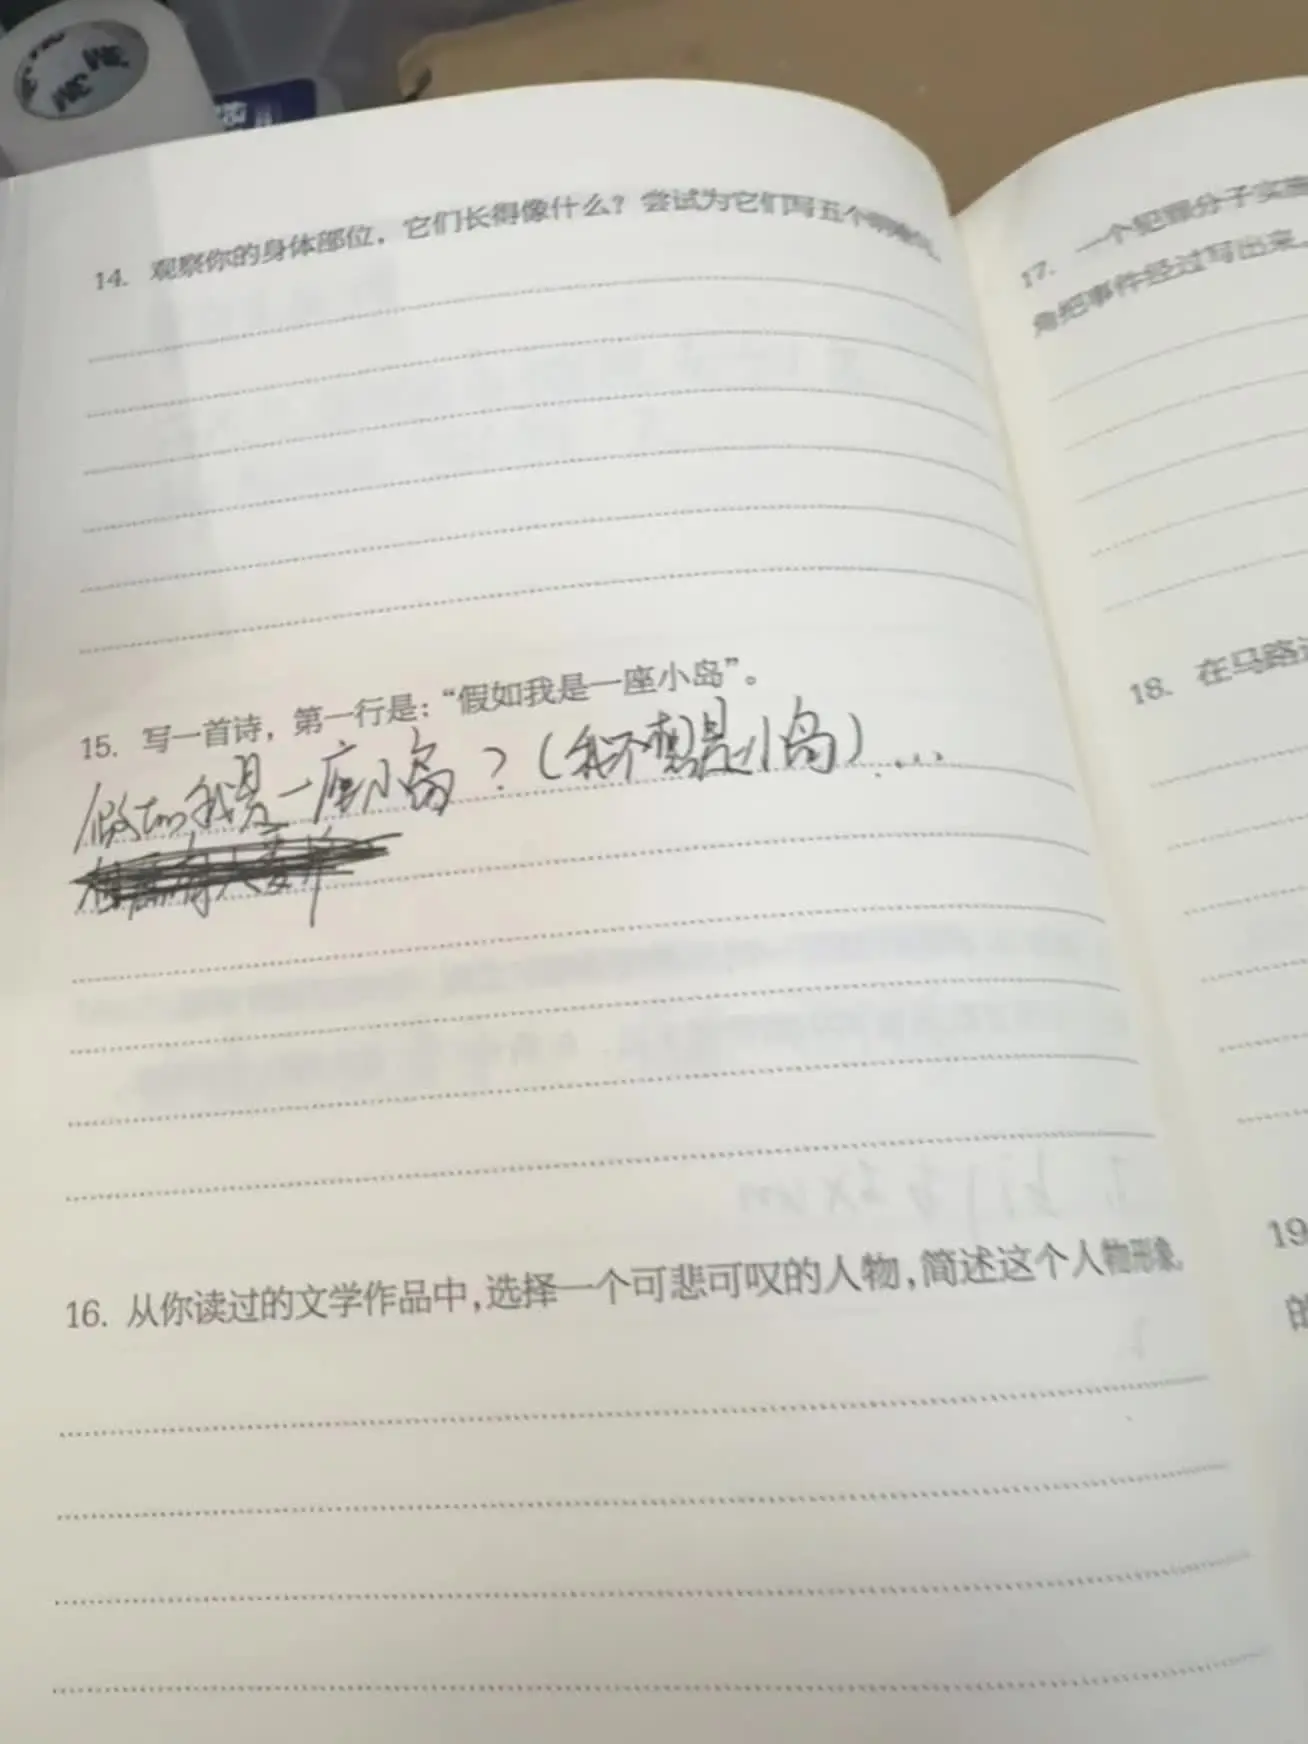 3M
3M
14. 观察你的身体部位，它们长得像什么？尝试为它们写五个
17. 一个犯罪分子实施
角把事件经过写出来
15. 写一首诗，第一行是：“假如我是一座小岛”。
假如我是一座小岛？（我不想是小岛）....
18. 在马路边
16. 从你读过的文学作品中，选择一个可悲可叹的人物，简述这个人物形象
19
的